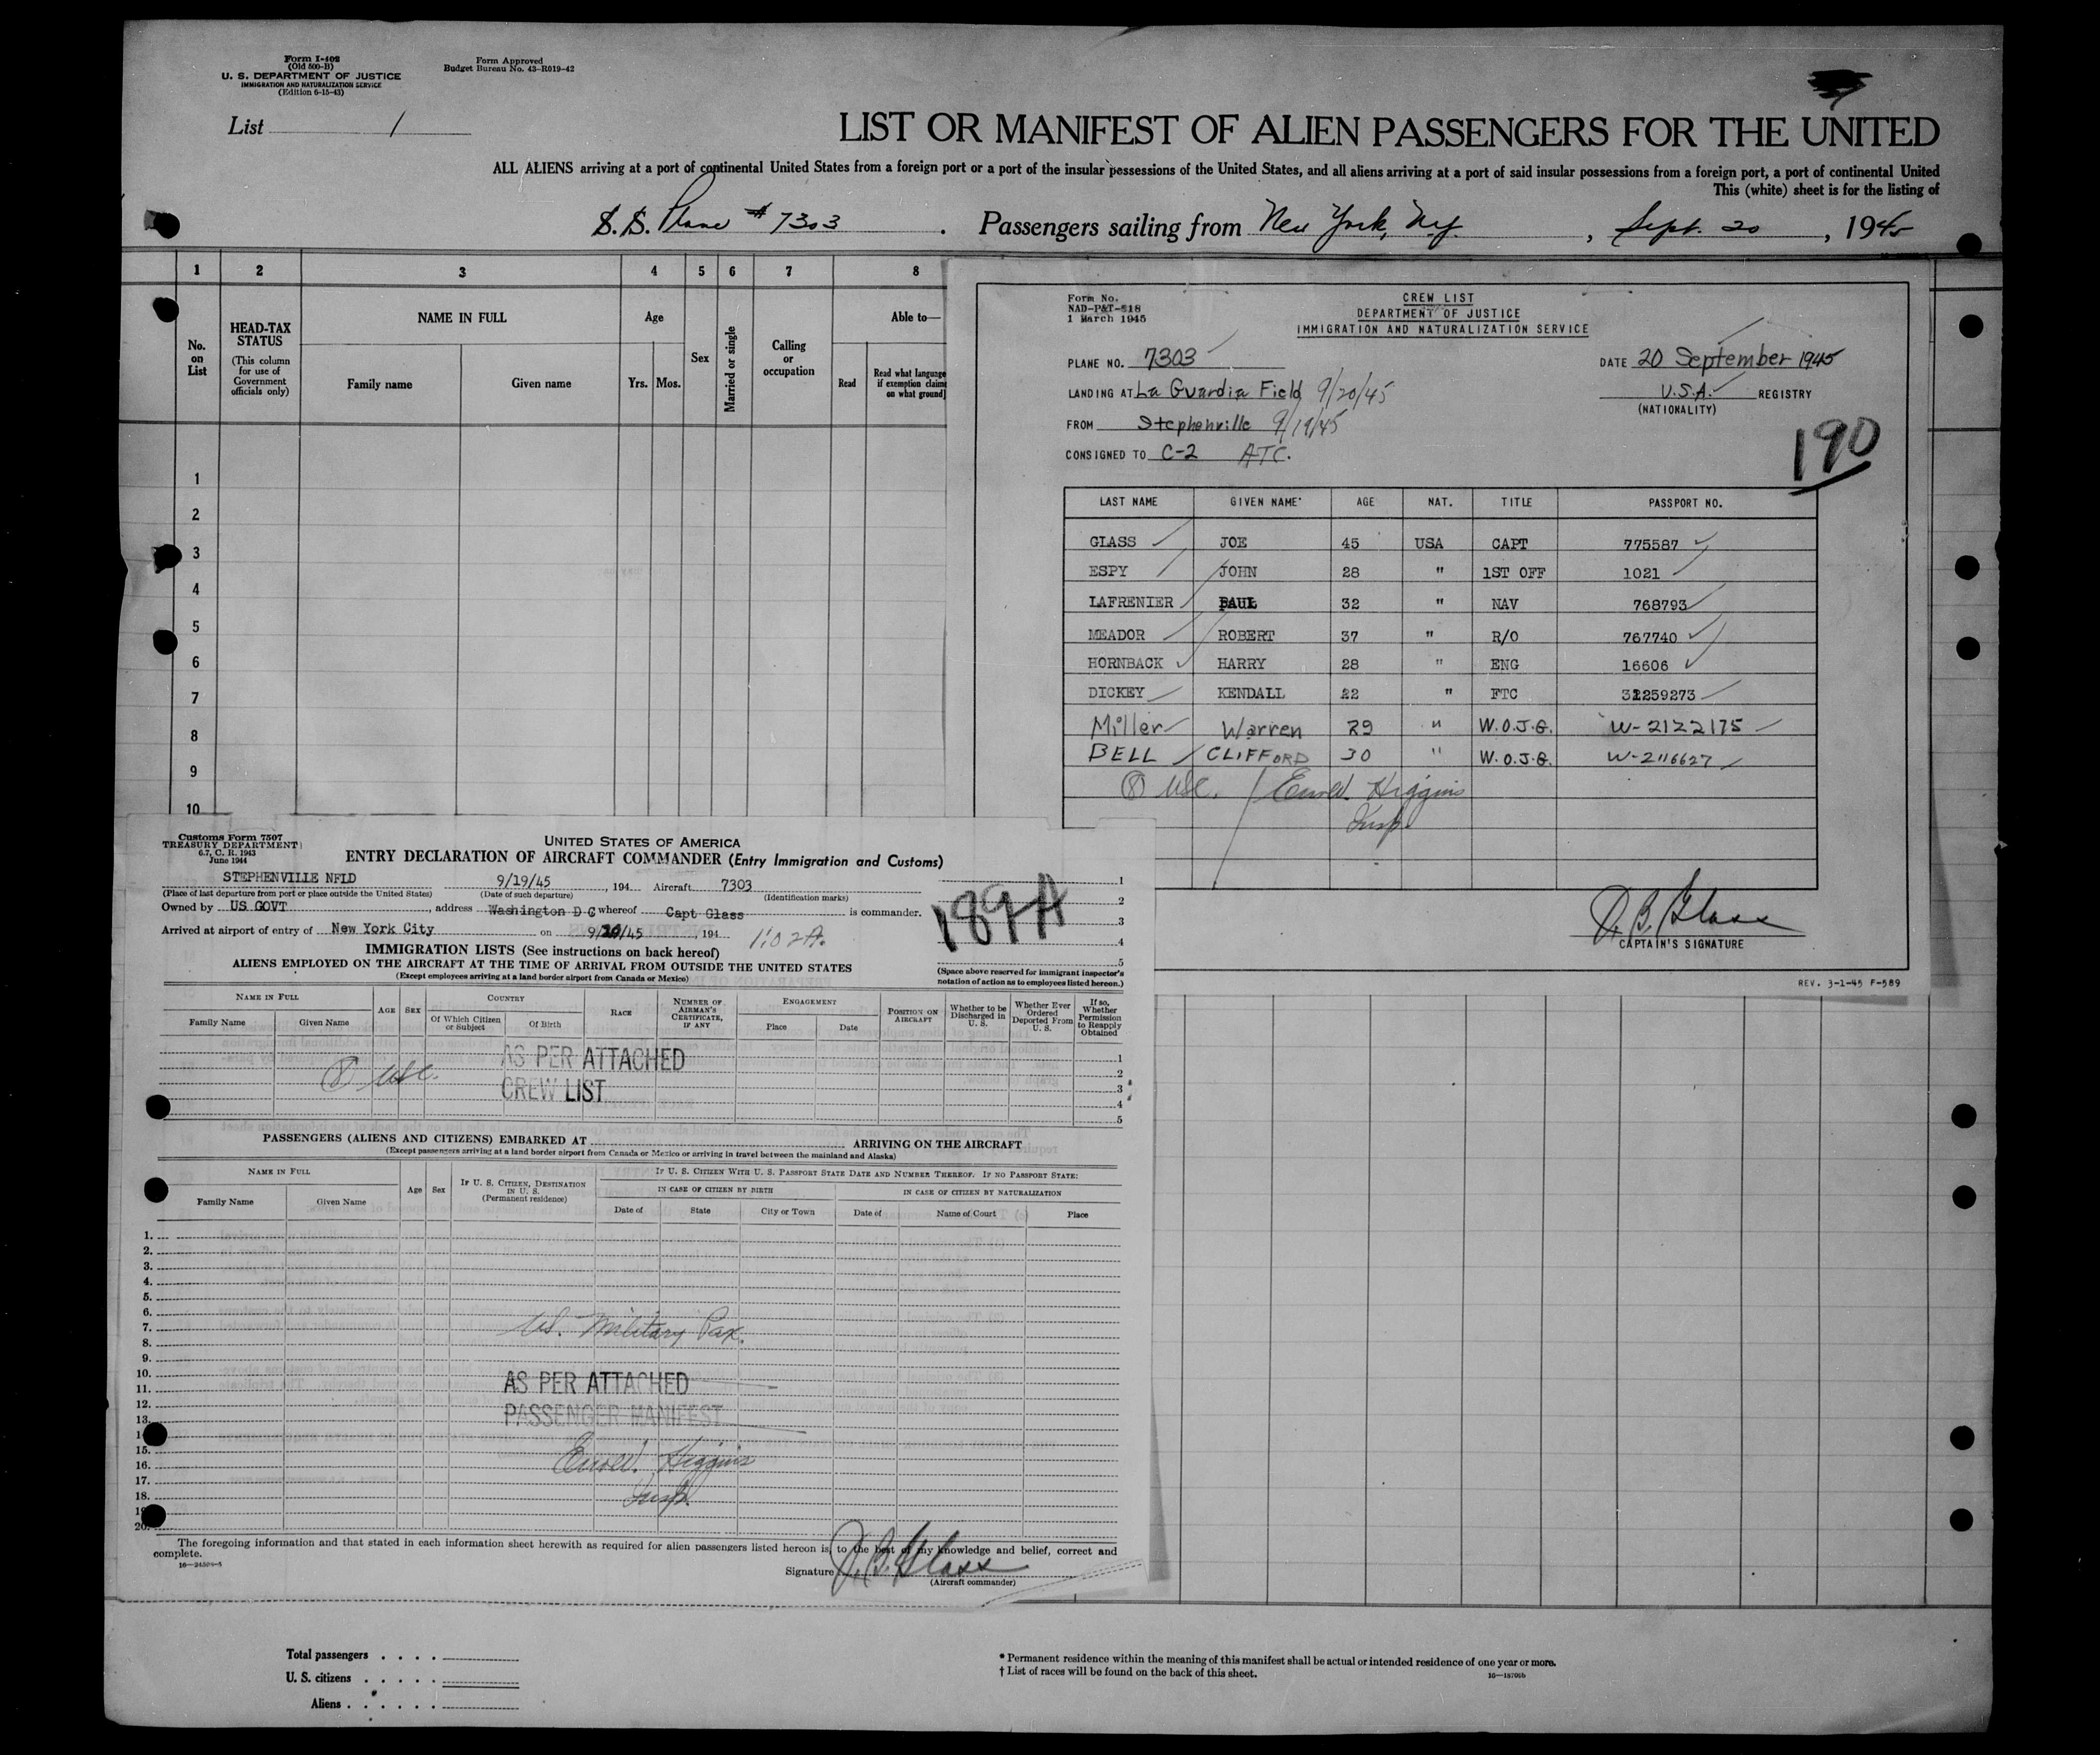 Form I-402
(Old 500-B)
U. S. DEPARTMENT OF JUSTICE
IMMIGRATION AND NATURALIZATION SERVICE
(Edition 6-15-43)
Form Approved
Budget Bureau No. 43-R019-42
List 1
LIST OR MANIFEST OF ALIEN PASSENGERS FOR THE UNITED
ALL ALIENS arriving at a port of continental United States from a foreign port or a port of the insular possessions of the United States, and all aliens arriving at a port of said insular possessions from a foreign port, a port of continental United
This (white) sheet is for the listing of
S.S. Plane # 7303 . Passengers sailing from New York, N.Y. , Sept. 20 , 1945
1 2 3 4 5 6 7 8
No. on List
HEAD-TAX STATUS
(This column for use of Government officials only)
NAME IN FULL
Family name Given name
Age
Yrs. Mos.
Sex
Married or single
Calling or occupation
Able to—
Read
Read what language
if exemption claime
on what ground]
1
2
3
4
5
6
7
8
9
10
Form No.
NAD-P&T-518
1 March 1945
CREW LIST
DEPARTMENT OF JUSTICE
IMMIGRATION AND NATURALIZATION SERVICE
PLANE NO. 7303
DATE 20 September 1945
LANDING AT La Guardia Field 9/20/45
U.S.A. REGISTRY
(NATIONALITY)
FROM Stephenville 9/19/45
CONSIGNED TO C-2 ATC.
190
LAST NAME GIVEN NAME AGE NAT. TITLE PASSPORT NO.
GLASS JOE 45 USA CAPT 775587
ESPY JOHN 28 " 1ST OFF 1021
LAFRENIER PAUL 32 " NAV 768793
MEADOR ROBERT 37 " R/O 767740
HORNBACK HARRY 28 " ENG 16606
DICKEY KENDALL 22 " FTC 31259273
Miller Warren 29 " W.O.J.G. W-2122175
BELL CLIFFORD 30 " W.O.J.G. W-2116627
(8) USC. Higgins
Insp.
J. B. Glass
CAPTAIN'S SIGNATURE
REV. 3-1-45 F-589
Customs Form 7507
TREASURY DEPARTMENT
6.7, C. R. 1943
June 1944
UNITED STATES OF AMERICA
ENTRY DECLARATION OF AIRCRAFT COMMANDER (Entry Immigration and Customs)
STEPHENVILLE NFLD 9/19/45 , 194 Aircraft 7303
(Place of last departure from port or place outside the United States) (Date of such departure) (Identification marks)
Owned by US GOVT , address Washington D C whereof Capt Glass is commander.
Arrived at airport of entry of New York City on 9/20/45 , 194 1:02A.
189A
1
2
3
4
5
(Space above reserved for immigrant inspector's
notation of action as to employees listed hereon.)
IMMIGRATION LISTS (See instructions on back hereof)
ALIENS EMPLOYED ON THE AIRCRAFT AT THE TIME OF ARRIVAL FROM OUTSIDE THE UNITED STATES
(Except employees arriving at a land border airport from Canada or Mexico)
NAME IN FULL
Family Name Given Name
AGE SEX
COUNTRY
Of Which Citizen or Subject Of Birth
RACE
NUMBER OF AIRMAN'S CERTIFICATE, IF ANY
ENGAGEMENT
Place Date
POSITION ON AIRCRAFT
Whether to be Discharged in U. S.
Whether Ever Ordered Deported From U. S.
If so, Whether Permission to Reapply Obtained
AS PER ATTACHED
CREW LIST
(8) USC.
1
2
3
4
5
PASSENGERS (ALIENS AND CITIZENS) EMBARKED AT ARRIVING ON THE AIRCRAFT
(Except passengers arriving at a land border airport from Canada or Mexico or arriving in travel between the mainland and Alaska)
NAME IN FULL
Family Name Given Name
Age Sex
IF U. S. CITIZEN, DESTINATION IN U. S.
(Permanent residence)
IF U. S. CITIZEN WITH U. S. PASSPORT STATE DATE AND NUMBER THEREOF. IF NO PASSPORT STATE:
IN CASE OF CITIZEN BY BIRTH IN CASE OF CITIZEN BY NATURALIZATION
Date of State City or Town Date of Name of Court Place
1.
2.
3.
4.
5.
6.
7.
8.
9.
10.
11.
12.
13.
14
15.
16.
17.
18.
19
20.
US. Military Pax.
AS PER ATTACHED
PASSENGER MANIFEST
Higgins
Insp.
The foregoing information and that stated in each information sheet herewith as required for alien passengers listed hereon is, to the best of my knowledge and belief, correct and
complete.
Signature J. B. Glass
(Aircraft commander)
Total passengers . . . .
U. S. citizens . . . . .
Aliens . . . . . .
* Permanent residence within the meaning of this manifest shall be actual or intended residence of one year or more.
† List of races will be found on the back of this sheet.